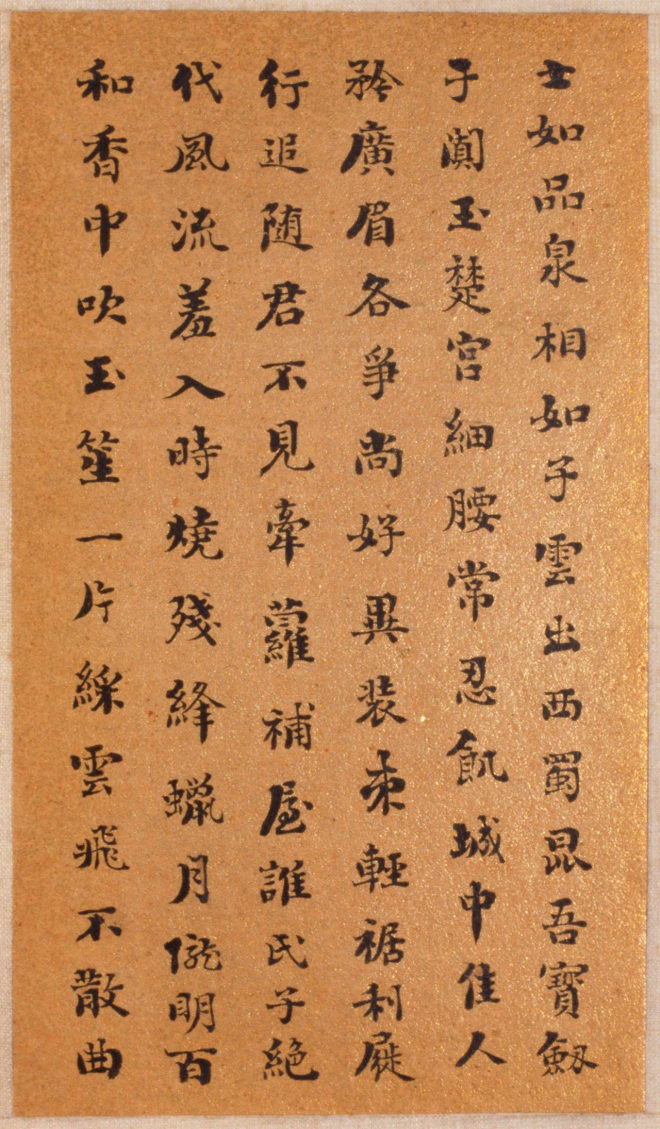 士如品泉相如子雲出西蜀昆吾寶劔
子闐玉楚宮細腰常忍飢城中佳人
矜廣眉各爭尚好異装束輕裾利屣
行追随君不見牽蘿補屋誰氏子絕
代風流羞入時燒殘絳蠟月朧明百
和香中吹玉笙一片綵雲飛不散曲